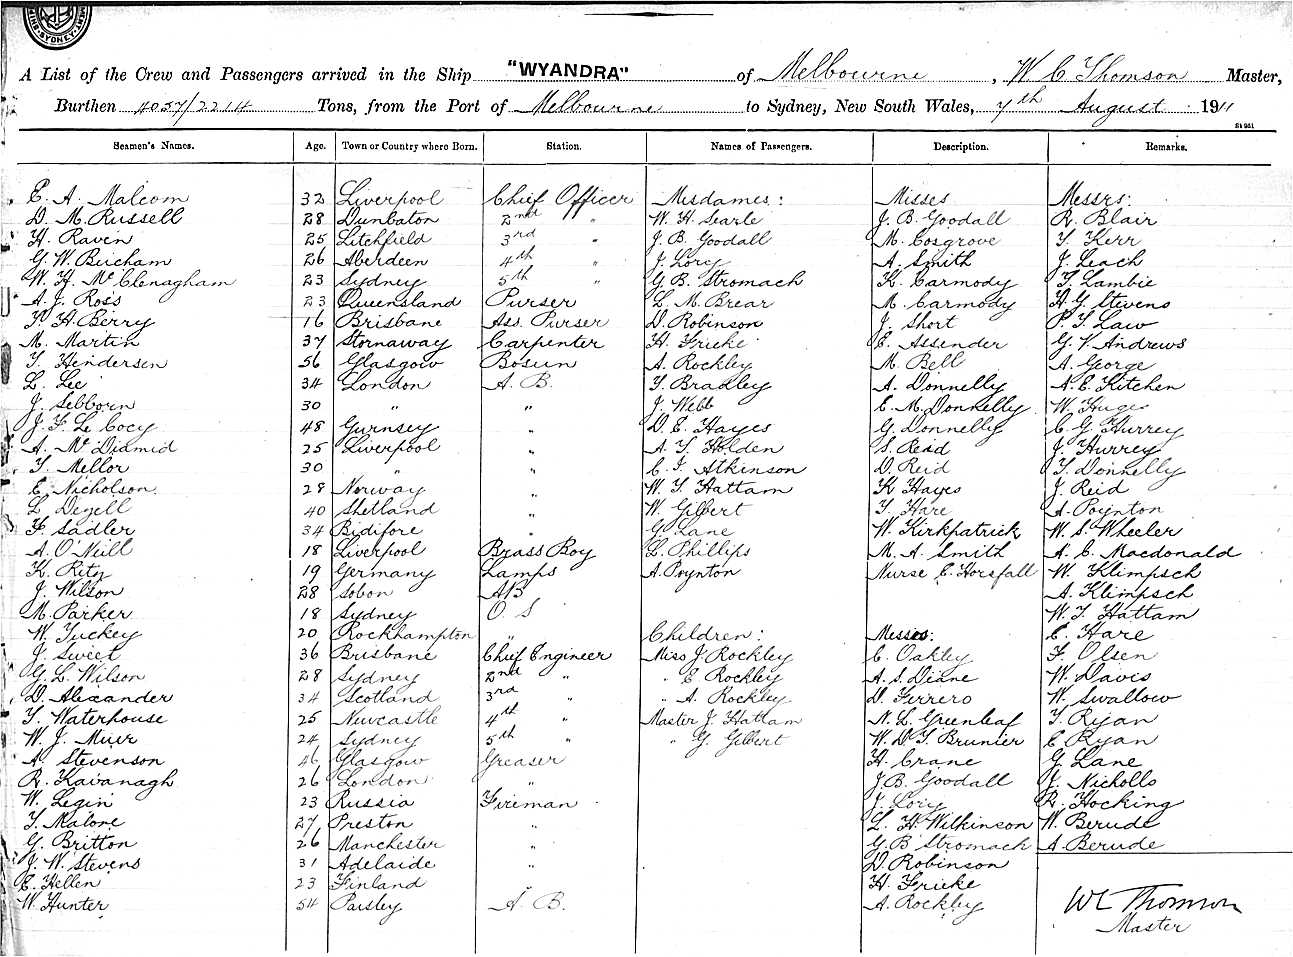 SYDNEY
A List of the Crew and Passengers arrived in the Ship "WYANDRA" of Melbourne, W C Thomson Master,
Burthen 4057/2214 Tons, from the Port of Melbourne to Sydney, New South Wales, 7th August 1911
St 961
Seamen's Names. Age. Town or Country where Born. Station. Names of Passengers. Description. Remarks.
E. A. Malcom 32 Liverpool Chief Officer Misdames: Misses Messrs:
D. M. Russell 28 Dunbaton 2nd " W. H. Searle J. B. Goodall R. Blair
H. Raven 25 Litchfield 3rd " J. B. Goodall M. Cosgrove T. Kerr
G. W. Beicham 26 Aberdeen 4th " J. Lory A. Smith J. Leach
W. H. Mc Clenagham 23 Sydney 5th " G. B. Stromach K. Carmody T. Lambie
A. J. Ross 23 Queensland Purser L. M. Brear M. Carmody H. G. Stevens
T. H. Berry 16 Brisbane Ass. Purser D. Robinson J. Short P. T. Law
M. Martin 37 Stornaway Carpenter H. Fricke E. Assender G. V. Andrews
T. Hendersen 56 Glasgow Bosun A. Rockley M. Bell A. George
L. Lee 34 London A. B. T. Bradley A. Donnelly A. E. Kitchen
J. Sebborn 30 " " J. Webb E. M. Donnelly W. Huge
J. F. Le Cocy 48 Gurnsey " D. E. Hayes G. Donnelly C. G. Hurrey
A. Mc Diamid 25 Liverpool " A. T. Holden S. Reid J. Hurrey
T. Mellor 30 " " C. I. Atkinson D. Reid T. Donnelly
E. Nicholson 28 Norway " W. T. Hattam K. Hayes J. Reid
L. Deyell 40 Shetland " W. Gilbert T. Hare A. Poynton
F. Sadler 34 Bidifore " G. Lane W. Kirkpatrick W. S. Wheeler
A. O'Mill 18 Liverpool Brass Boy L. Phillips M. A. Smith A. C. Macdonald
K. Ritz 19 Germany Lamps A. Poynton Nurse E. Horsfall W. Klimpsch
J. Wilson 28 Sobon AB A. Klimpsch
M. Parker 18 Sydney O. S W. T. Hattam
W. Tuckey 20 Rockhampton " Children: Messrs: E. Hare
J. Sweet 36 Brisbane Chief Engineer Miss J. Rockley C. Oakley F. Olsen
G. L. Wilson 28 Sydney 2nd " " E Rockley A. S. Diane W. Davis
D. Alexander 34 Scotland 3rd " " A. Rockley D. Ferrero W. Swallow
T. Waterhouse 25 Newcastle 4th " Master J. Hattam N. L. Greenleaf T. Ryan
W. J. Muir 24 Sydney 5th " " G. Gilbert W. D. T. Brunier E Ryan
A. Stevenson 46 Glasgow Greaser H. Crane G. Lane
R. Kavanagh 26 London " J. B. Goodall J. Nicholls
W. Legin 23 Russia Fireman J. Lory R. Hocking
T. Malone 27 Preston " L. H. Wilkinson W. Berude
G. Britton 26 Manchester " G. B Stromach A. Berude
J. W. Stevens 31 Adelaide " D. Robinson
E. Hellen 23 Finland " H. Fricke
W. Hunter 54 Paisley A. B. A. Rockley
WC Thomson
Master